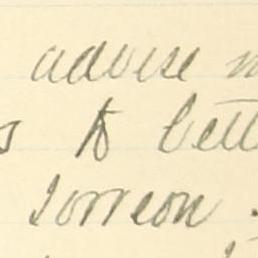 advise m
s to bett
Torreon.